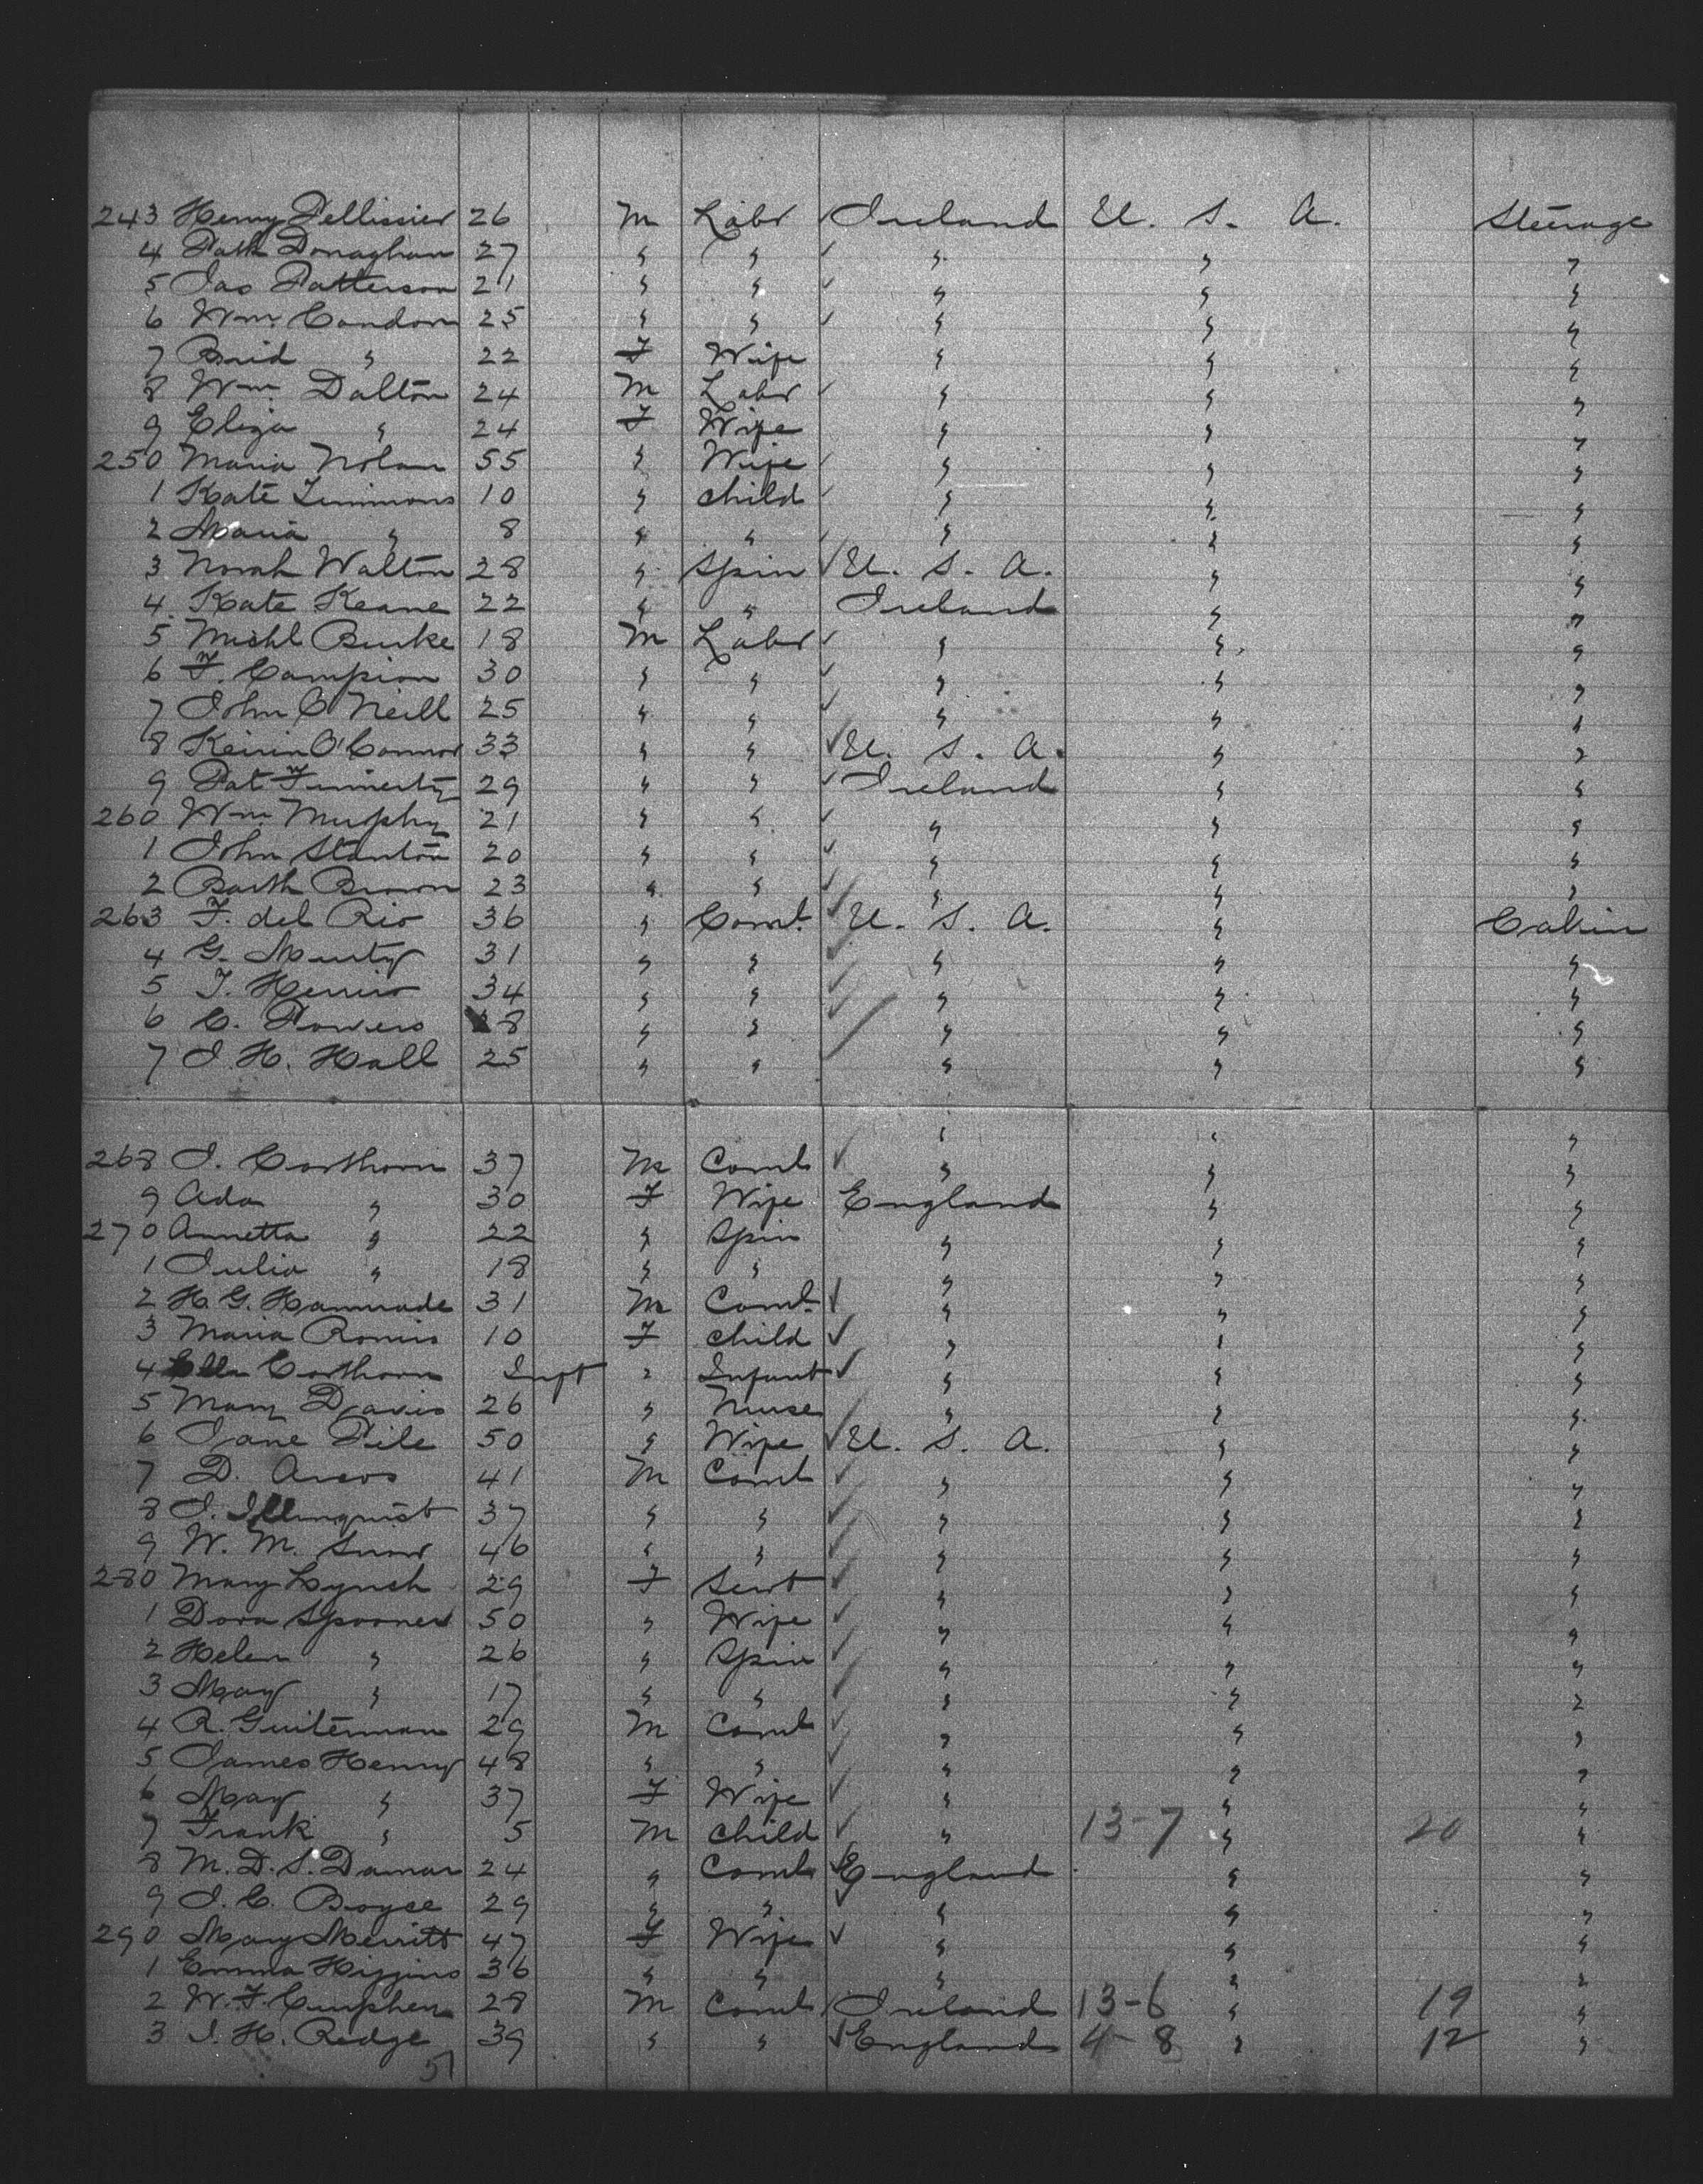 243 Henry Pellissier 26 M Labr Ireland U. S. A. Steerage
4 Patk Donaghan 27 " " " " "
5 Jas Patterson 21 " " " " "
6 Wm. Condon 25 " " " " "
7 Brid " 22 F Wife " " "
8 Wm. Dalton 24 M Labr " " "
9 Eliza " 24 F Wife " " "
250 Maria Nolan 55 " Wife " " "
1 Kate Timmons 10 " child " " "
2 Maria " 8 " " " " "
3 Norah Walton 28 " Spin U. S. A. " "
4 Kate Keane 22 " " Ireland " "
5 Michl Burke 18 M Labr " " "
6 T. Campion 30 " " " " "
7 John O'Neill 25 " " " " "
8 O'Connor 33 " " U. S. A. " "
9 Pat Finnerty 29 " " Ireland " "
260 Wm Murphy 21 " " " " "
1 John Stanton 20 " " " " "
2 Barth Brown 23 " " " " "
263 F. del Rio 36 " Comt. U. S. A. " Cabin
4 G. 31 " " " " "
5 34 " " " " "
6 C. Powers 8 " " " " "
7 J. H. Hall 25 " " " " "
" " "
268 J. Corthorn 37 M Comt " " "
9 Ada " 30 F Wife England " "
270 Annetta " 22 " Spin " " "
1 Julia " 18 " " " " "
2 H. G. 31 M Comt. " " "
3 Maria 10 F child " " "
4 Corthorn Inft " Infant " " "
5 Mary Davis 26 " Nurse " " "
6 Jane Pile 50 " Wife U. S. A. " "
7 D. 41 M Comt " " "
8 J. 37 " " " " "
9 W. M. Snow 46 " " " " "
280 Mary Lynch 29 F Servt " " "
1 Dora Spooner 50 " Wife " " "
2 Helen " 26 " Spin " " "
3 May " 17 " " " " "
4 R. Guiterman 29 M Comt " " "
5 James Henry 48 " " " " "
6 May " 37 F Wife " " "
7 Frank " 5 M child " 13-7 " 20 "
8 M. D. S. Damar 24 " Comt England " "
9 J. C. Boyce 29 " " " " "
290 Mary Merritt 47 F Wife " " "
1 Emma Higgins 36 " " " " "
2 W. F. Cumphen 28 M Comt Ireland 13-6 " 19 "
3 J. H. Redge 39 " " England 4-8 " 12 "
51